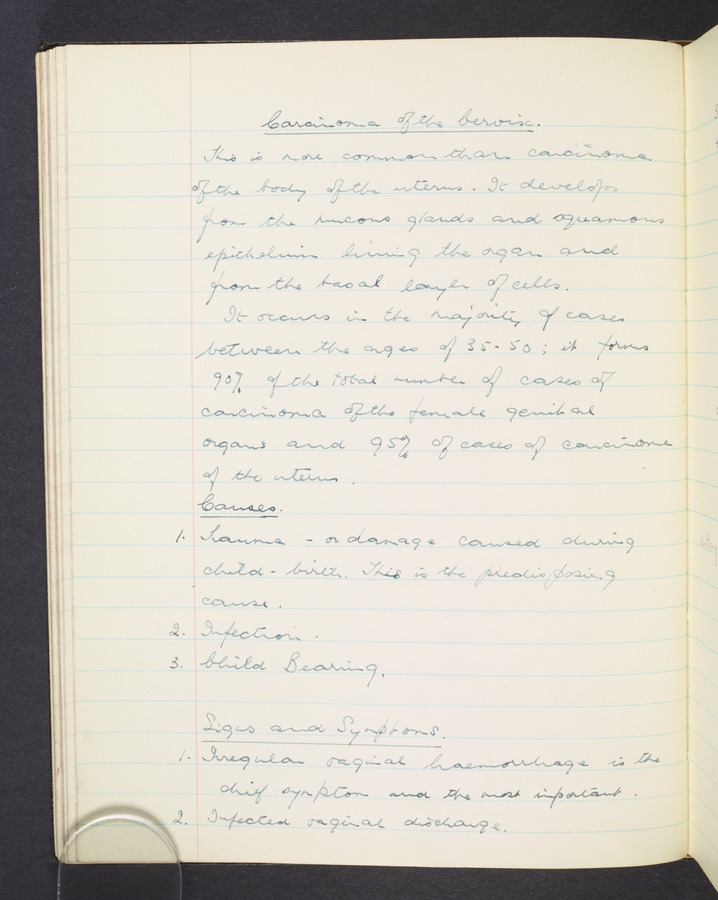 Carcinoma of the Cervix.
This is more common than carcinoma
of the body of the uterus. It develops
from the mucous glands and squamous
epithelium lining the organ and
from the basal layer of cells.
It occurs in the majority of cases
between the ages of 35-50; it forms
90% of the total number of cases of
carcinoma of the female genital
organs and 95% of cases of carcinoma
of the uterus.
Causes.
1. Trauma - or damage caused during
child-birth. This is the predisposing
cause.
2. Infection.
3. Child Bearing.
Signs and Symptoms.
1. Irregular vaginal haemorrhage is the
chief symptom and the most important.
2. Infected vaginal discharge.